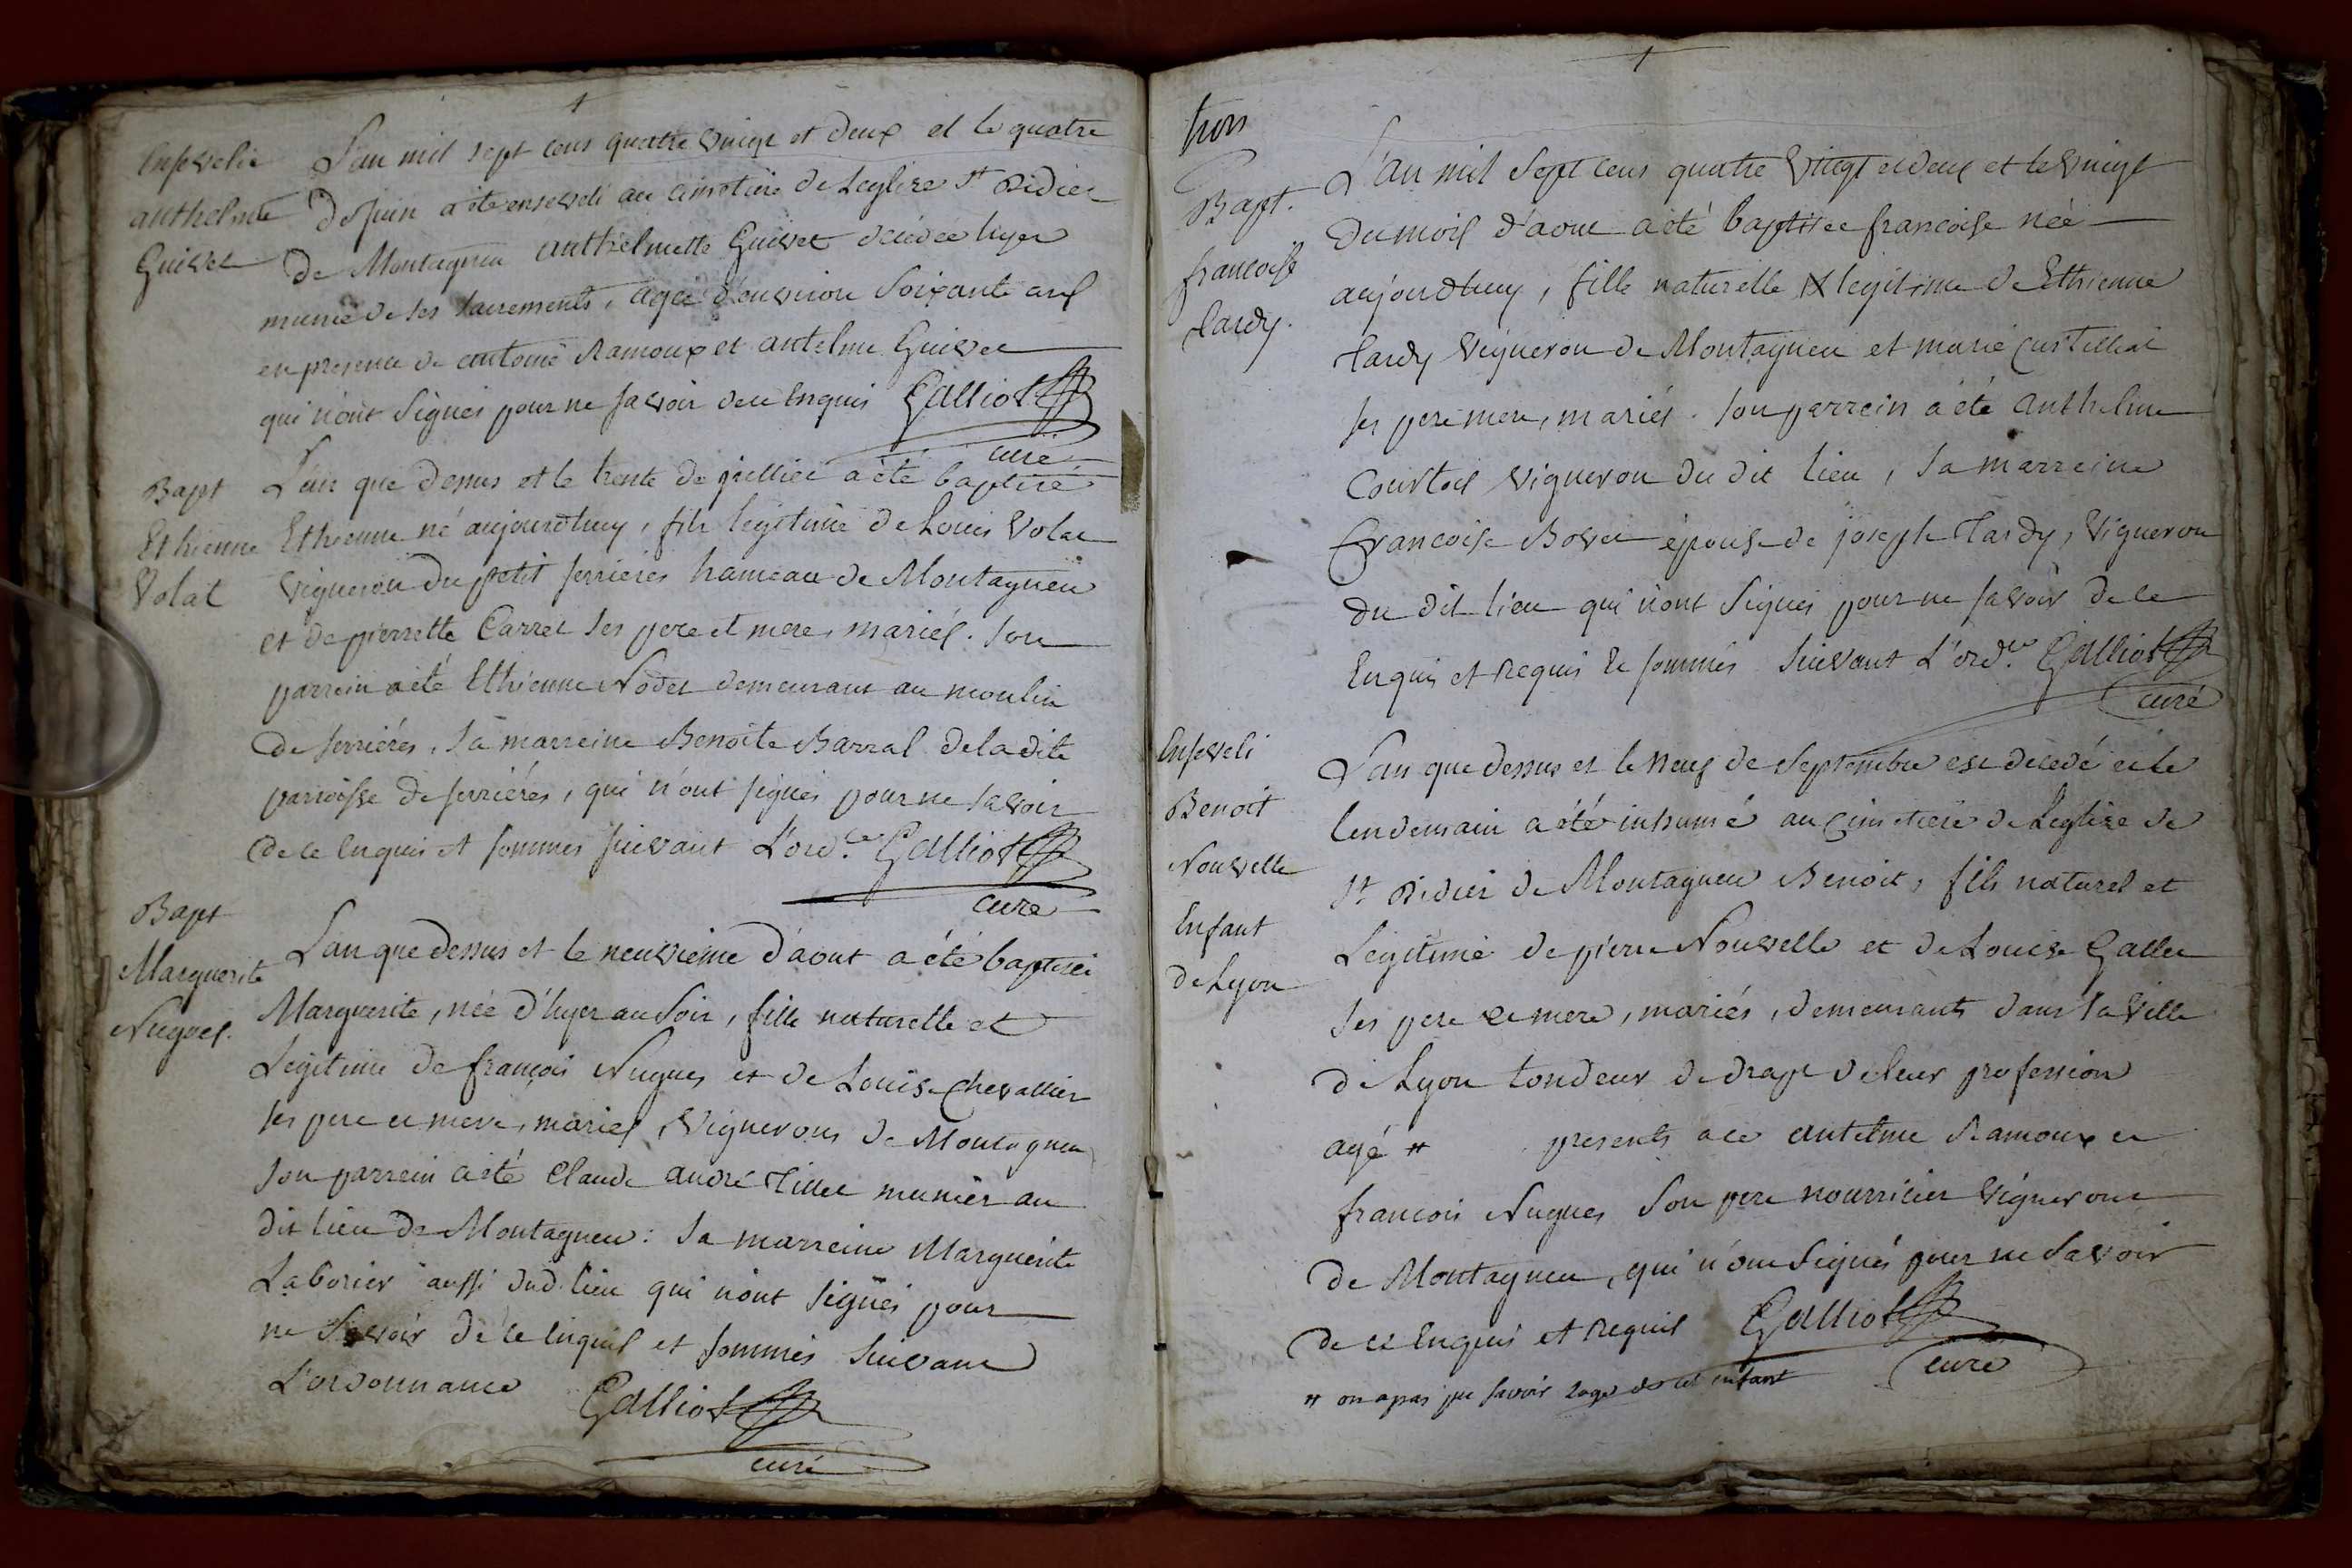 Ensevelie
anthelmte
Guivet
L'an mil sept cens quatre vingt et deux et le quatre
de juin a ete enseveli au cimetiere de Leglise St Didier
de Montagneu anthelmette Guivet décédée hyer
munie de ses sacrements, agée d'environ soixante ans
en presence de antoine Ramoux et antelme Guivet
qui n'ont signés pour ne savoir de ce Enquis Galliot
curé
Bapt
Ethienne
Volat
L'an que dessus et le trente de juillier a été baptisé
Ethienne né aujourdhuy, fils legitime de Louis Volat
vigneron du petit serrieres hameau de Montagneu
et de pierrette Carret ses pere et mere, mariés. son
parrein a été Ethienne Nodet demeurant au moulin
de serriéres, sa marreine Benoîte Barral de la dite
parroisse de serriéres, qui n'ont signés pour ne savoir
de ce enquis et sommés suivant L'ord.ce Galliot
curé
Bapt
Marguerite
Nugues.
L'an que dessus et le neuvième d'aout a été baptisée
Marguerite, née d'hyer au soir, fille naturelle et
Legitime de françois Nugues et de Louise Chevallier
ses pere et mere, mariés, vignerons de Montagneu
son parrein a été Claude andré Tillet munier au
dit lieu de Montagneu: sa marreine Marguerite
Laborier aussi dud. lieu qui n'ont signés pour
ne savoir de ce Enquis et sommés suivant
L'ordonnance Galliot
curé
trois
Bapt.
francoise
Tardy.
L'an mil sept cens quatre vingt et deux et le vingt
du mois d'aout a été baptisée francoise née
aujourdhuy, fille naturelle & legitime de Ethienne
Tardy vigneron de Montagneu et marie
ses pere mere, mariés. son parrein a été anthelme
Courtois vigneron du dit lieu, sa marreine
Francoise Bovet épouse de joseph Tardy, vigneron
du dit lieu qui n'ont signés pour ne savoir de ce
Enquis et Requis & sommés suivant L'ord.ce Galliot
curé
Enseveli
Benoit
Nouvelle
Enfant
de Lyon
L'an que dessus et le neuf de septembre est decedé et le
lendemain a été inhumé au cimetiere de Leglise de
St Didier de Montagneu Benoit, fils naturel et
Légitime de pierre Nouvelle et de Louise Gallet
ses pere et mere, mariés, demeurants dans la ville
de Lyon tondeur de drap de leur profession
agé # presents a ce antelme Ramoux et
francois Nugues son pere nourricier vignerons
de Montagneu, qui n'ont signés pour ne savoir
de ce Enquis et Requis Galliot
curé
# on a pas pu savoir l'age de cet enfant